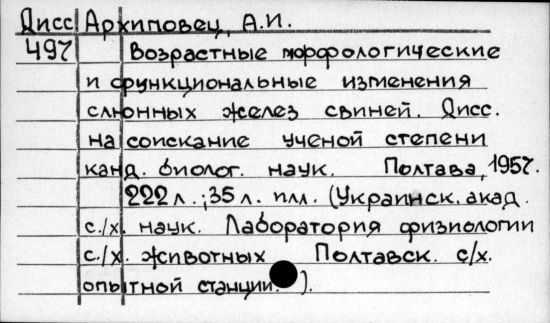 Дисс Архиповец, А.И.
497 Возрастные морфологические
и функциональные изменения
слюнных желез свиней. Дисс.
на соискание ученой степени
канд. биолог. наук. Полтава, 1957.
222 л.; 35 л. илл. (Украинск. акад.
с./х. наук. Лаборатория физиологии
с./х. животных Полтавск. с/х.
опытной станции.).